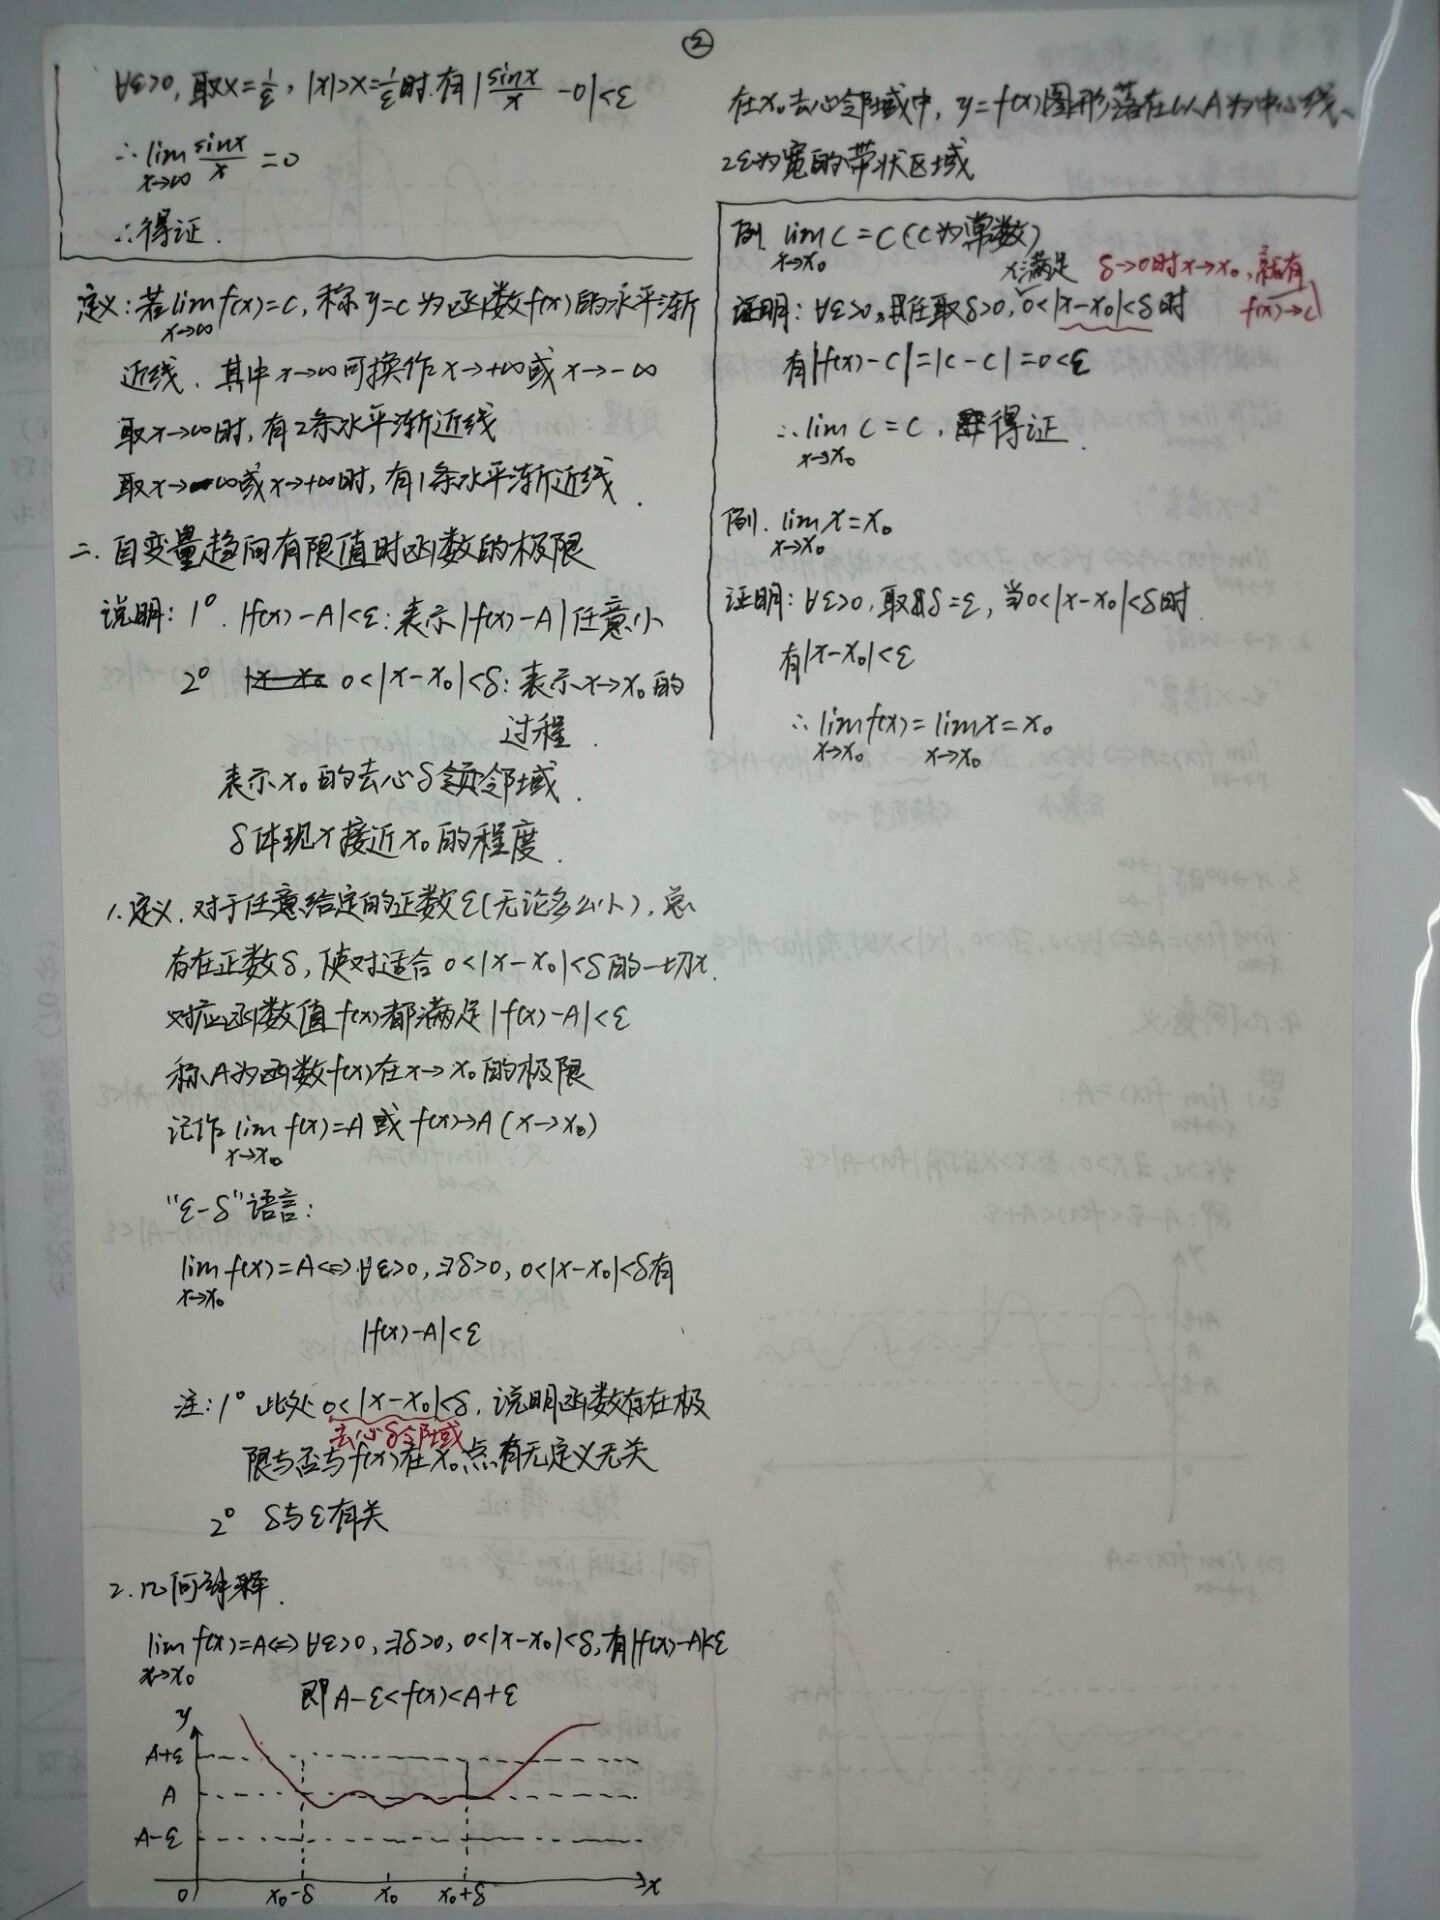 ②
∀ε>0, 取X=1/ε, |x|>X=1/ε时.有|sinx/x -0|<ε
∴ lim sinx/x =0
x→∞
∴得证.
定义:若lim f(x)=C, 称y=C为函数f(x)的水平渐
x→∞
近线. 其中x→∞可换作x→+∞或x→-∞
取x→∞时,有2条水平渐近线
取x→-∞或x→+∞时,有1条水平渐近线.
二. 自变量趋向有限值时函数的极限
说明: 1°. |f(x)-A|<ε:表示|f(x)-A|任意小
2° 0<|x-x₀|<δ:表示x→x₀的
过程.
表示x₀的去心δ邻域.
δ体现x接近x₀的程度.
1.定义. 对于任意给定的正数ε(无论多么小), 总
存在正数δ, 使对适合0<|x-x₀|<δ的一切x.
对应函数值f(x)都满足|f(x)-A|<ε
称A为函数f(x)在x→x₀的极限
记作 lim f(x)=A 或 f(x)→A (x→x₀)
x→x₀
"ε-δ"语言:
lim f(x)=A⇔∀ε>0, ∃δ>0, 0<|x-x₀|<δ有
x→x₀
|f(x)-A|<ε
注: 1° 此处0<|x-x₀|<δ, 说明函数存在极
去心δ邻域
限与否与f(x)在x₀点有无定义无关
2° δ与ε有关
2.几何解释.
lim f(x)=A⇔∀ε>0, ∃δ>0, 0<|x-x₀|<δ,有|f(x)-A|<ε
x→x₀
即A-ε<f(x)<A+ε
y
A+ε
A
A-ε
0 x₀-δ x₀ x₀+δ x
在x₀去心邻域中, y=f(x)图形落在以A为中心线、
2ε为宽的带状区域
例. lim C=C (C为常数)
x→x₀
x满足 δ→0时x→x₀, 就有
f(x)→C
证明: ∀ε>0, 任取δ>0, 0<|x-x₀|<δ时
有|f(x)-C|=|C-C|=0<ε
∴ lim C=C, 得证.
x→x₀
例. lim x=x₀
x→x₀
证明: ∀ε>0, 取δ=ε, 当0<|x-x₀|<δ时
有|x-x₀|<ε
∴ lim f(x)=lim x=x₀
x→x₀ x→x₀